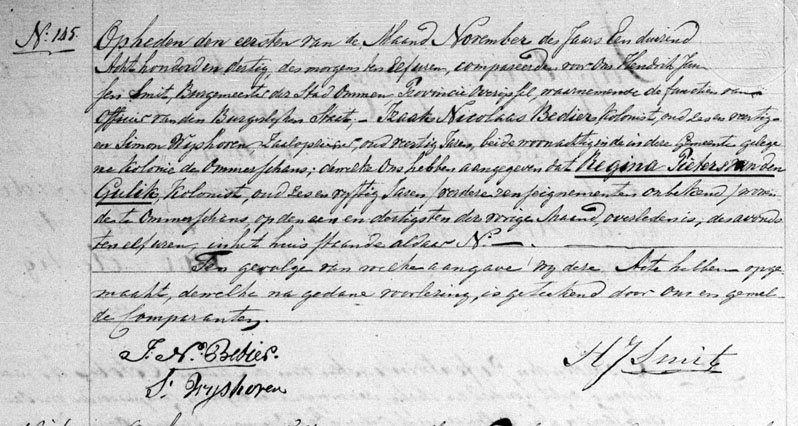 N: 145.
Opheden den eersten van de Maand November des Jaars Een duizend
Acht honderd en dertig, des morgens ten elf uren, compareerden voor Ons Hendrik Jan
sen Smit, Burgemeester der Stad Ommen Provincie Overijssel waarnemende de functien van
Officier van den Burgerlijken Staat, - Izaak Nicolaas Bedier, Kolonist, oud zes en veertig
en Simon Wyshoven Zaalopziener, oud veertig Jaren, beide woonachtig in de in deze Gemeente gelege
ne Kolonie de Ommerschans; dewelke Ons hebben aangegeven dat Regina Pieters van den
Gulik, Kolonist, oud zes en vyftig Jaren /verdere renseignementen onbekend/ wonen
de te Ommerschans, op den een en dertigsten der vorige Maand, overleden is, des avonds
ten elf uren, in het huis staande aldaar No —
Ten gevolge van welke aangave wy deze Acte hebben opge
maakt, dewelke na gedane voorlezing, is geteekend door Ons en gemel
de Comparanten.
J. Ns Bedier.
S. Wyshoven
HJ Smit